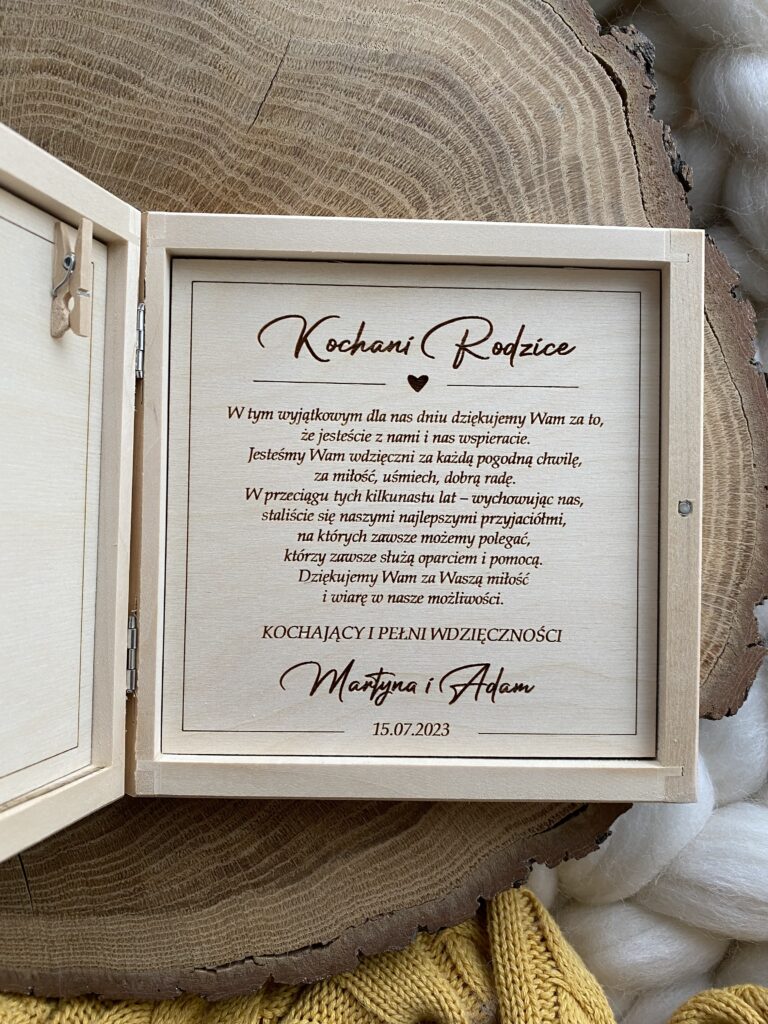 Kochani Rodzice
W tym wyjątkowym dla nas dniu dziękujemy Wam za to,
że jesteście z nami i nas wspieracie.
Jesteśmy Wam wdzięczni za każdą pogodną chwilę,
za miłość, uśmiech, dobrą radę.
W przeciągu tych kilkunastu lat – wychowując nas,
staliście się naszymi najlepszymi przyjaciółmi,
na których zawsze możemy polegać,
którzy zawsze służą oparciem i pomocą.
Dziękujemy Wam za Waszą miłość
i wiarę w nasze możliwości.
KOCHAJĄCY I PEŁNI WDZIĘCZNOŚCI
Martyna i Adam
15.07.2023